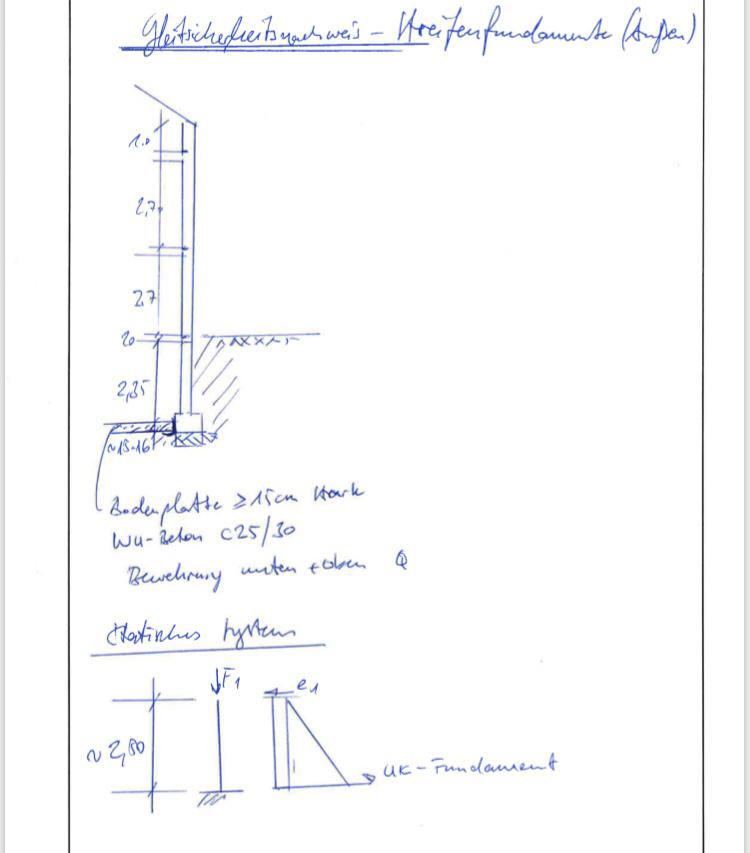 Gleitsicherheitsnachweis - Streifenfundamente (Außen)
1.0
2,7
2,7
20
2,35
~15-16
Bodenplatte ≥ 15cm stark
WU-Beton C25/30
Bewehrung unten + oben Q
Statisches System
F1
e1
~ 2,80
UK-Fundament